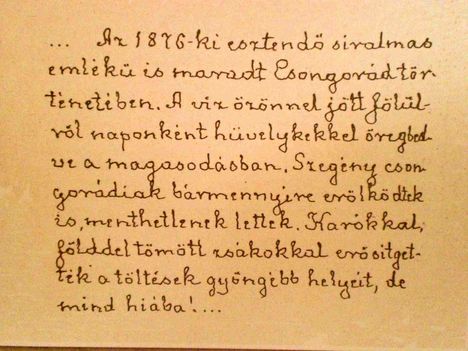 ... Az 1876-ki esztendő siralmas
emlékű is maradt Csongorád tör-
ténetében. A viz özönnel jött fölül-
ről naponként hüvelykekkel öregbed-
ve a magasodásban. Szegény cson-
gorádiak bármennyire erőlködtek
is, menthetlenek lettek. Karókkal,
földdel tömött zsákokkal erősitget-
ték a töltések gyöngébb helyeit, de
mind hiába!...